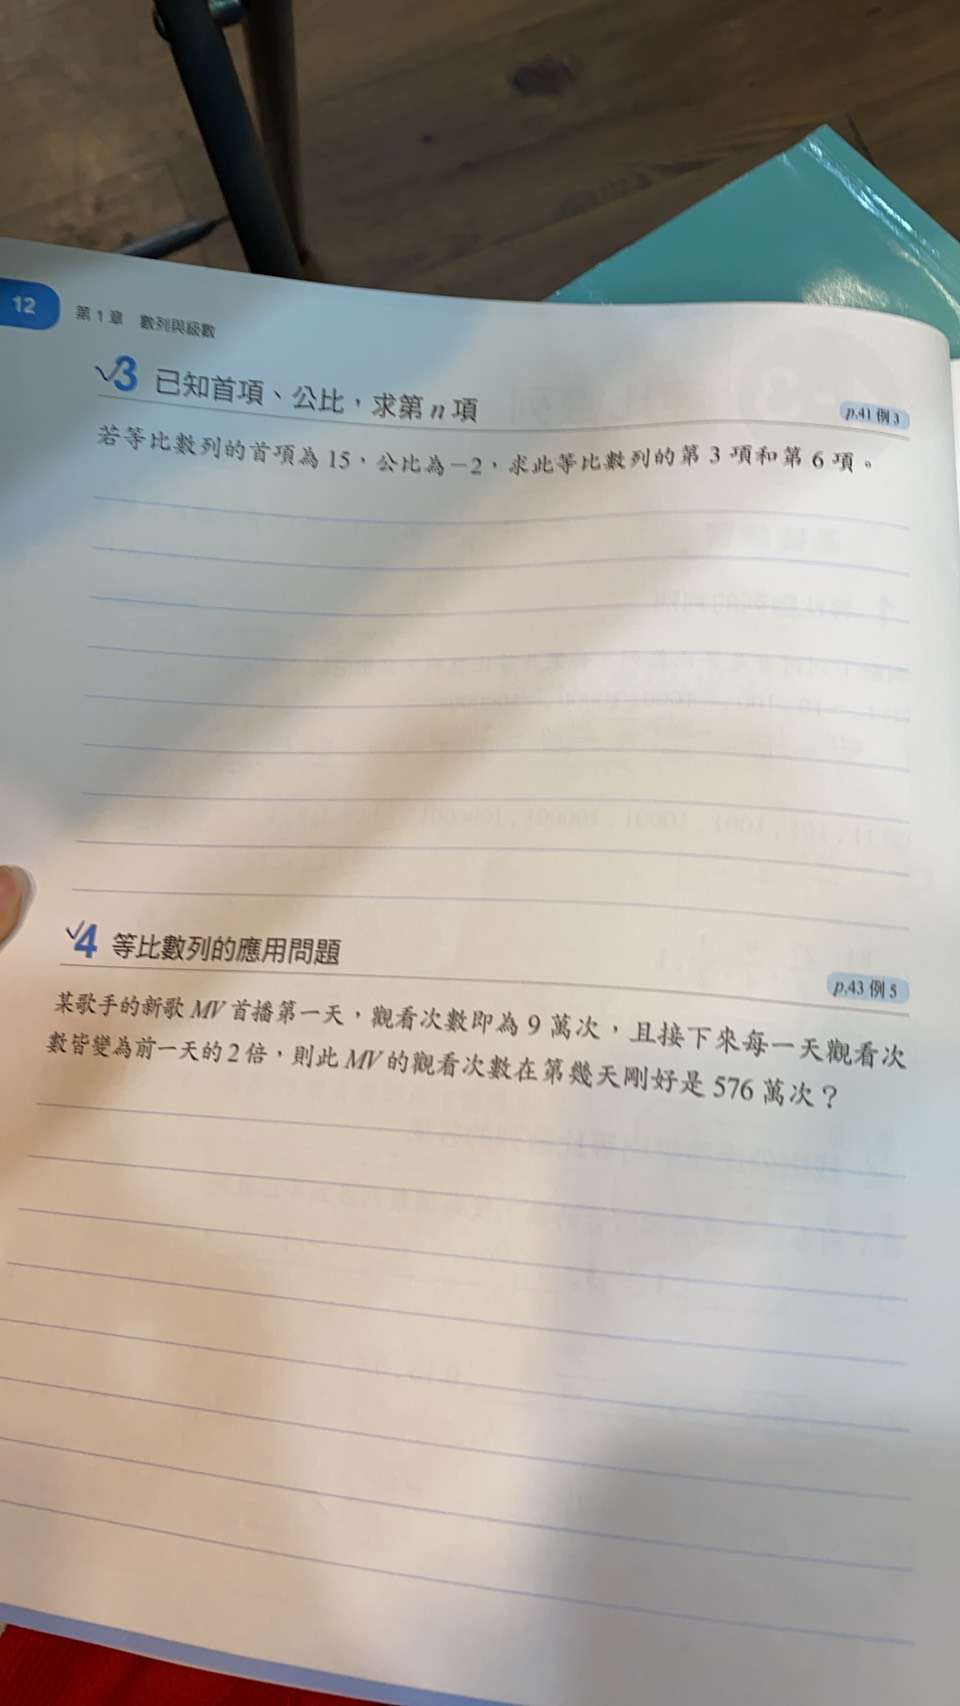 12
第1章 數列與級數
3 已知首項、公比，求第 n 項
p.41 例 3
若等比數列的首項為 15，公比為－2，求此等比數列的第 3 項和第 6 項。
4 等比數列的應用問題
p.43 例 5
某歌手的新歌 MV 首播第一天，觀看次數即為 9 萬次，且接下來每一天觀看次
數皆變為前一天的 2 倍，則此 MV 的觀看次數在第幾天剛好是 576 萬次？